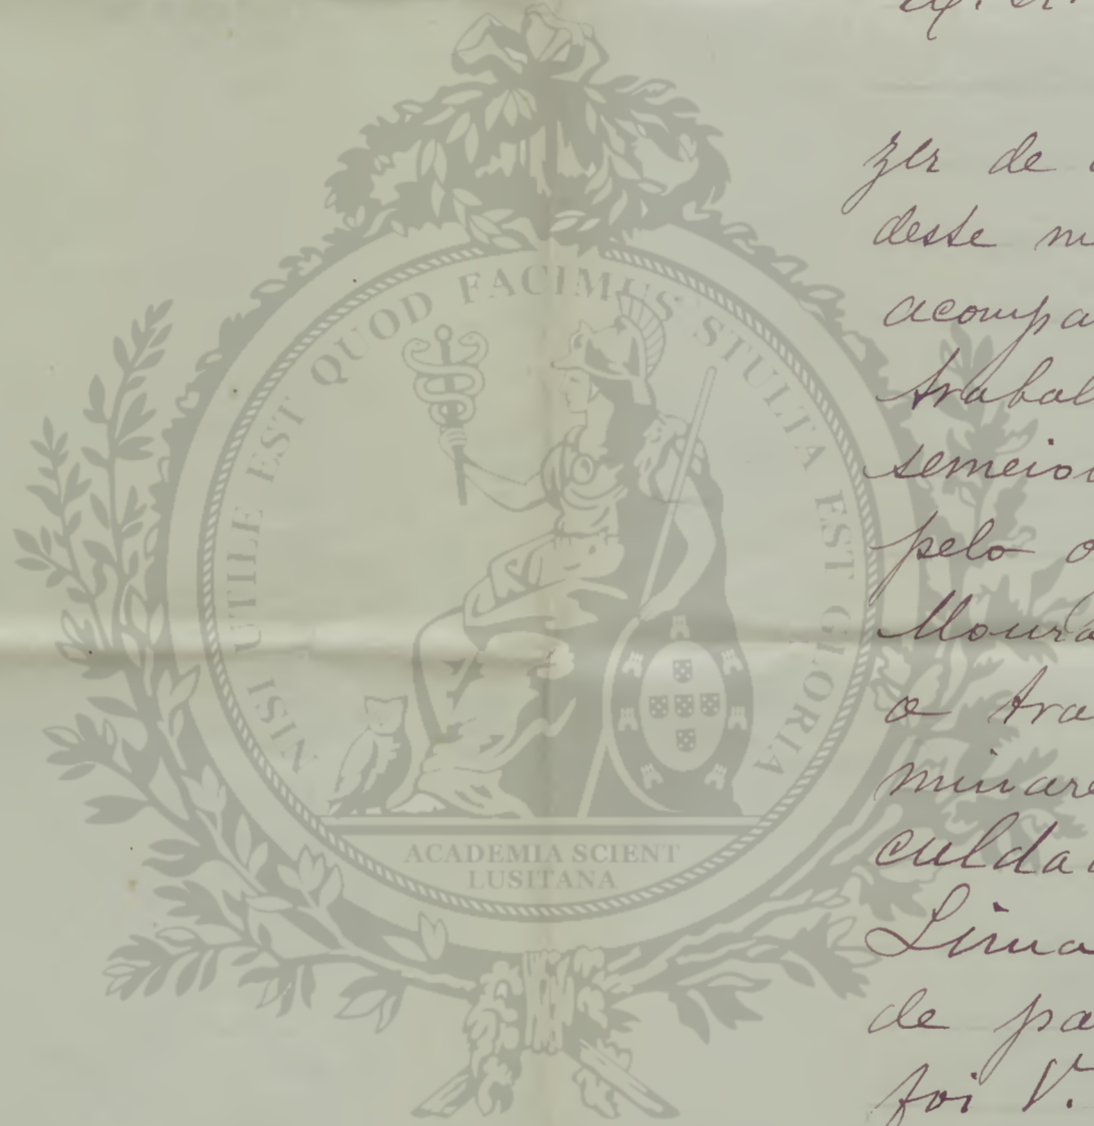 NISI UTILE EST QUOD FACIMUS STULTA EST GLORIA
ACADEMIA SCIENT
LUSITANA
zer de
deste
acompa
trabal
semeio
pelo o
Moura
o tra
minare
culda
Lima
de pa
foi V.